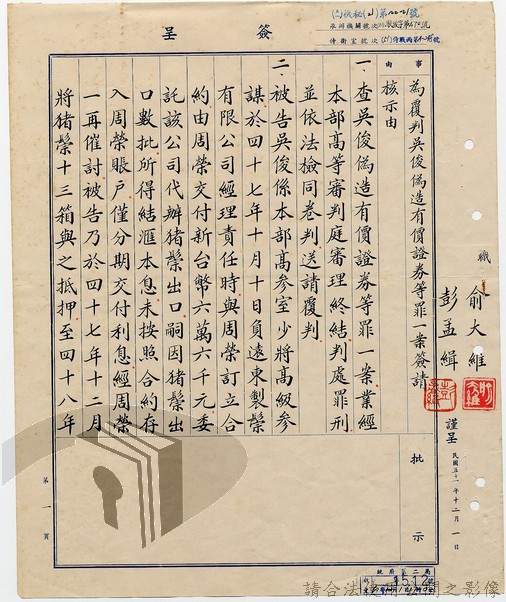 簽呈
事由
為覆判吳俊偽造有價證券等罪一案簽請
核示由
職 俞大維
彭孟緝
謹呈
民國五十一年十二月一日
一、查吳俊偽造有價證券等罪一案業經
本部高等審判庭審理終結判處罪刑
並依法檢同卷判送請覆判
二、被告吳俊係本部高參室少將高級參
謀於四十七年十月十日負遠東製鬃
有限公司經理責任時與周榮訂立合
約由周榮交付新台幣六萬六千元委
託該公司代辦豬鬃出口嗣因豬鬃出
口數批所得結滙本息未按照合約存
入周榮賬户僅分期交付利息經周榮
一再催討被告乃於四十七年十二月
將豬鬃十三箱與之抵押至四十八年
批示
第一頁
請合法使用公開之影像